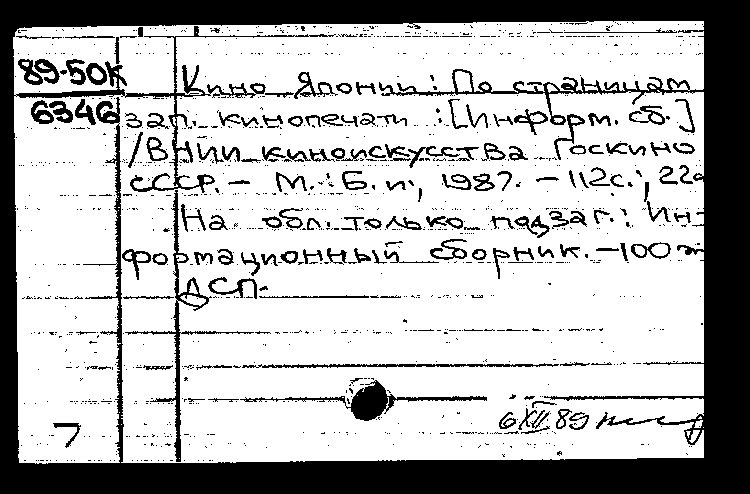 89-50К
6346
Кино Японии : По страницам
зап. кинопечати : [Информ. сб.]
/ВНИИ киноискусства Госкино
СССР. – М. : Б. и., 1987. – 112с.; 22
На обл. только подзаг.: Ин-
формационный сборник. – 100 э
ДСП.
7
6 XII 89